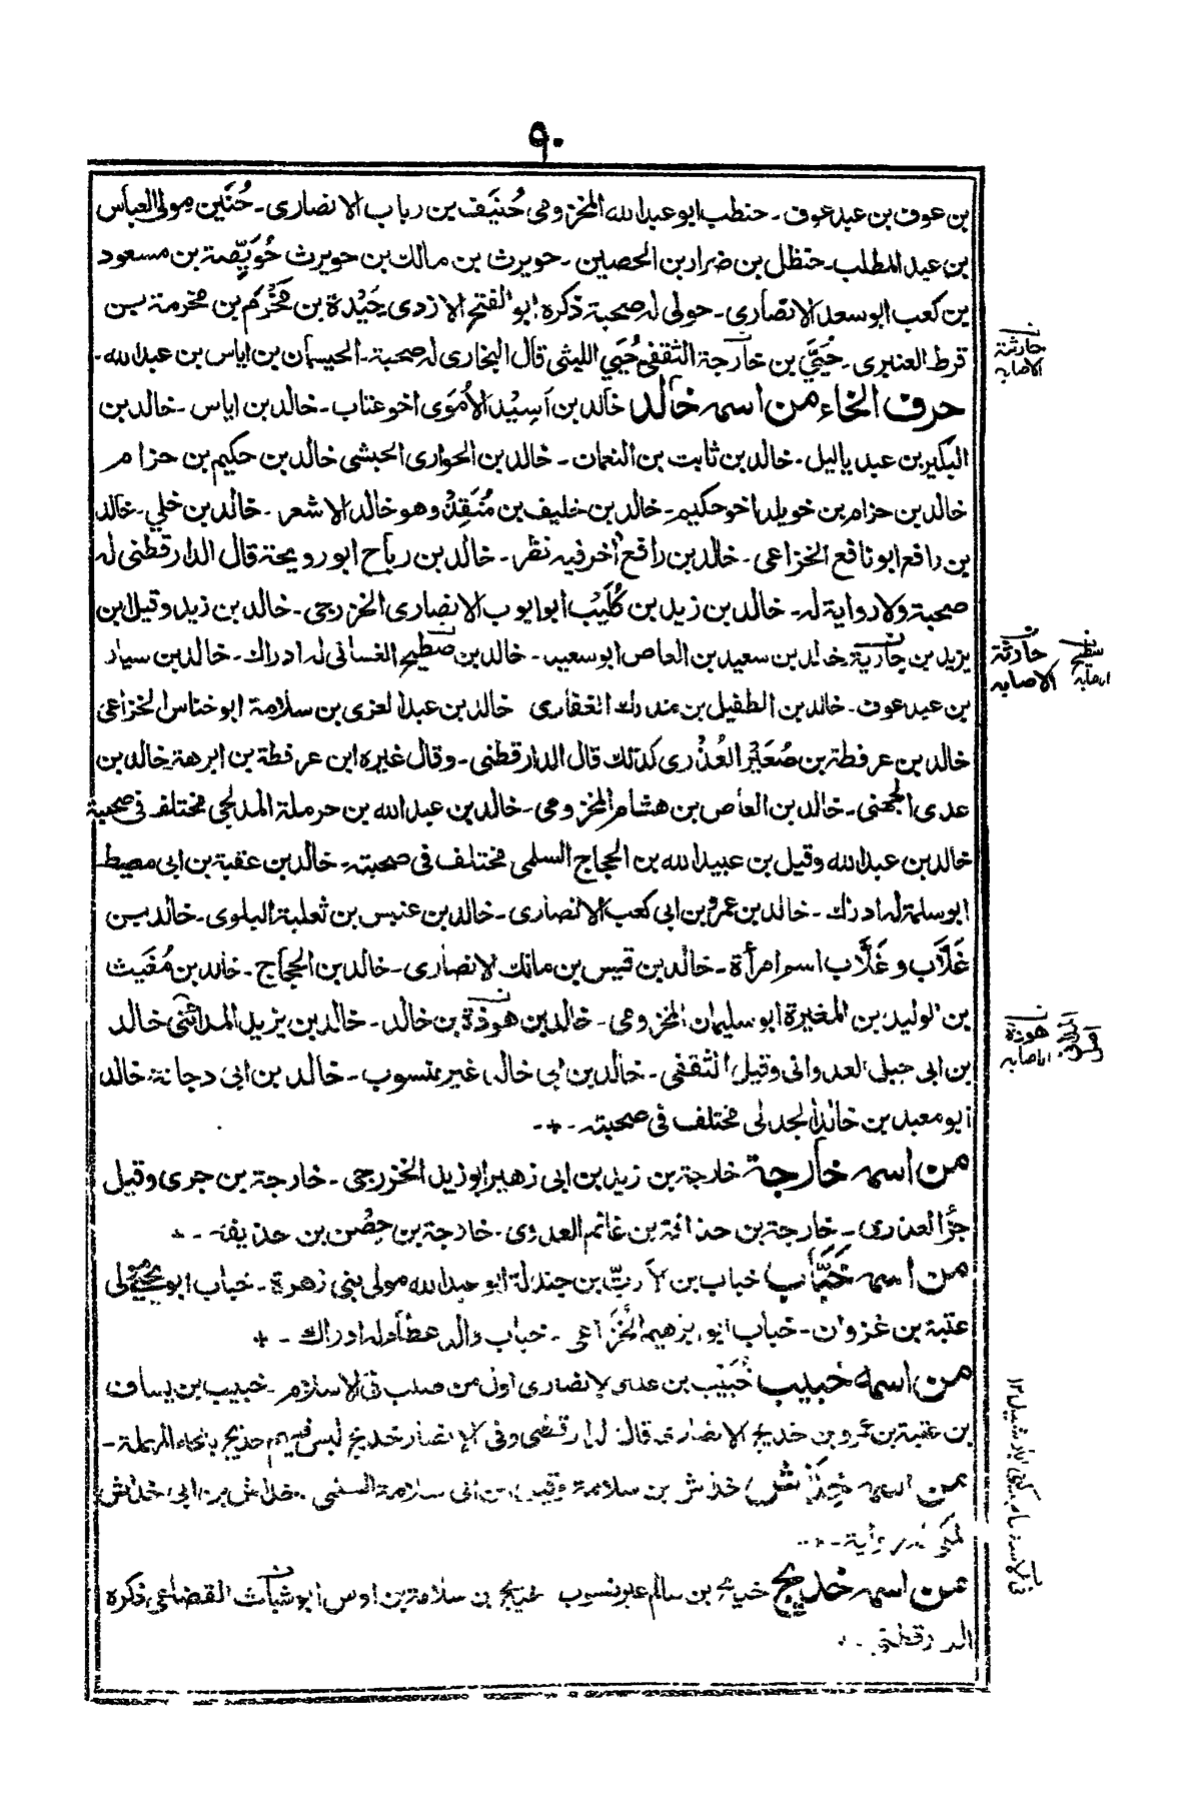 ٩٠
بن عوف بن عبد عوف - حنطب ابو عبد الله المخزومى حُنَيَف بن رباب الانصارى - حُنَين مولى العباس
بن عبد المطلب - حنظل بن ضرار بن الحصين - حويرث بن مالك بن حويرث حُوَيِّصة بن مسعود
بن كعب ابو سعد الانصارى - حولى له صحبة ذكره ابو الفتح الازدى حَيْدة بن مُخَرَّم بن مخرمة بن
قرط العنبرى - حُيَيّ بن خارجة الثقفى حُيَي الليثى قال البخارى له صحبة - الحيسمان بن اياس بن عبد الله -
حرف الخاء من اسمه خالد خالد بن اَسِيْد الاُمَوى اخو عتاب - خالد بن اياس - خالد بن
البكير بن عبد ياليل - خالد بن ثابت بن النعمان - خالد بن الحوارى الحبشى خالد بن حكيم بن حزام
خالد بن حزام بن خويلد اخو حكيم - خالد بن خليف بن مُنَقِذ وهو خالد الاشعر - خالد بن خلي - خالد
بن رافع ابو نافع الخزاعى - خالد بن رافع آخر فيه نظر - خالد بن رباح ابو رويحة قال الدارقطنى له
صحبة ولا رواية له - خالد بن زيد بن كُلَيْب ابو ايوب الانصارى الخزرجى - خالد بن زيد وقيل ابن
يزيد بن جارية خالد بن سعيد بن العاص ابو سعيد - خالد بن سطيح الغسانى له ادراك - خالد بن سيار
بن عبد عوف - خالد بن الطفيل بن مدرك الغفارى خالد بن عبد العزى بن سلامة ابو خناس الخزاعى
خالد بن عرفطة بن صُعَيْر العُذْرى كذلك قال الدارقطنى - وقال غيره ابن عرفطة بن ابرهة خالد بن
عدى الجهنى - خالد بن العاص بن هشام المخزومى - خالد بن عبد الله بن حرملة المدلجى مختلف فى صحبة
خالد بن عبد الله وقيل بن عبيد الله بن الحجاج السلمى مختلف فى صحبته - خالد بن عقبة بن ابى معيط
ابو سلمة له ادراك - خالد بن عمرو بن ابى كعب الانصارى - خالد بن عنبس بن ثعلبة البلوى - خالد بن
غَلَاب وغَلَّاب اسم امرأة - خالد بن قيس بن مالك الانصارى - خالد بن الحجاج - خالد بن مُغَيث
بن الوليد بن المغيرة ابو سليمان المخزومى - خالد بن هوذة بن خالد - خالد بن يزيد المدائنى خالد
بن ابى جبل العدوانى وقيل الثقفى - خالد بن ابى خالد غير منسوب - خالد بن ابى دجانة خالد
ابو معبد بن خالد الجدلى مختلف فى صحبته -
من اسمه خارجة خارجة بن زيد بن ابى زهير ابو زيد الخزرجى - خارجة بن جرى وقيل
جزأ العذرى - خارجة بن حذافة بن غانم العدوى - خارجة بن حِصْن بن حذيفة -
من اسمه خَبَّاب خباب بن الارتّ بن جندلة ابو عبد الله مولى بنى زهرة - خباب ابو يحيى مولى
عتبة بن غزوان - خباب ابو ابراهيم الخزاعى - خباب والد عطاء له ادراك -
من اسمه خبيب خُبَيْب بن عدى الانصارى اول من صلب فى الاسلام - خبيب بن يساف
بن عتبة بن عمرو بن خديج الانصارى قال الدارقطنى وفى الانصار خديج ليس فيهم حديج بالحاء المهملة -
من اسمه خِدَاش خداش بن سلامة وقيل ابن ابى سلامة السلمى - خداش بن ابى خداش
المكى
من اسمه خديج خديج بن سالم غير منسوب خديج بن سلامة بن اوس ابو شباث القضاعى ذكره
الدارقطنى -
حارثة
الاصابه
حارثة
الاصابه
سطيح
اصابه
هوذة
اصابه